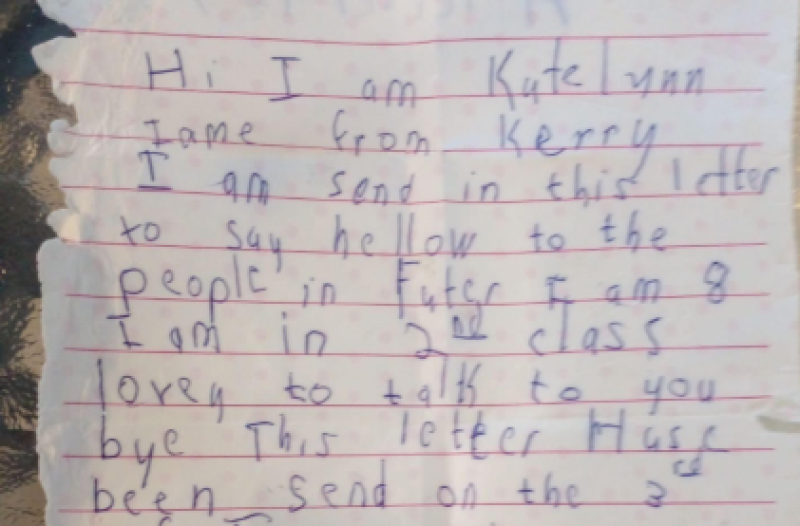 Hi I am Katelynn
I ame from Kerry
I am send in this letter
to say hellow to the
people in Futer I am 8
I am in 2nd class
lovey to talk to you
bye This letter Hase
been send on the 3rd